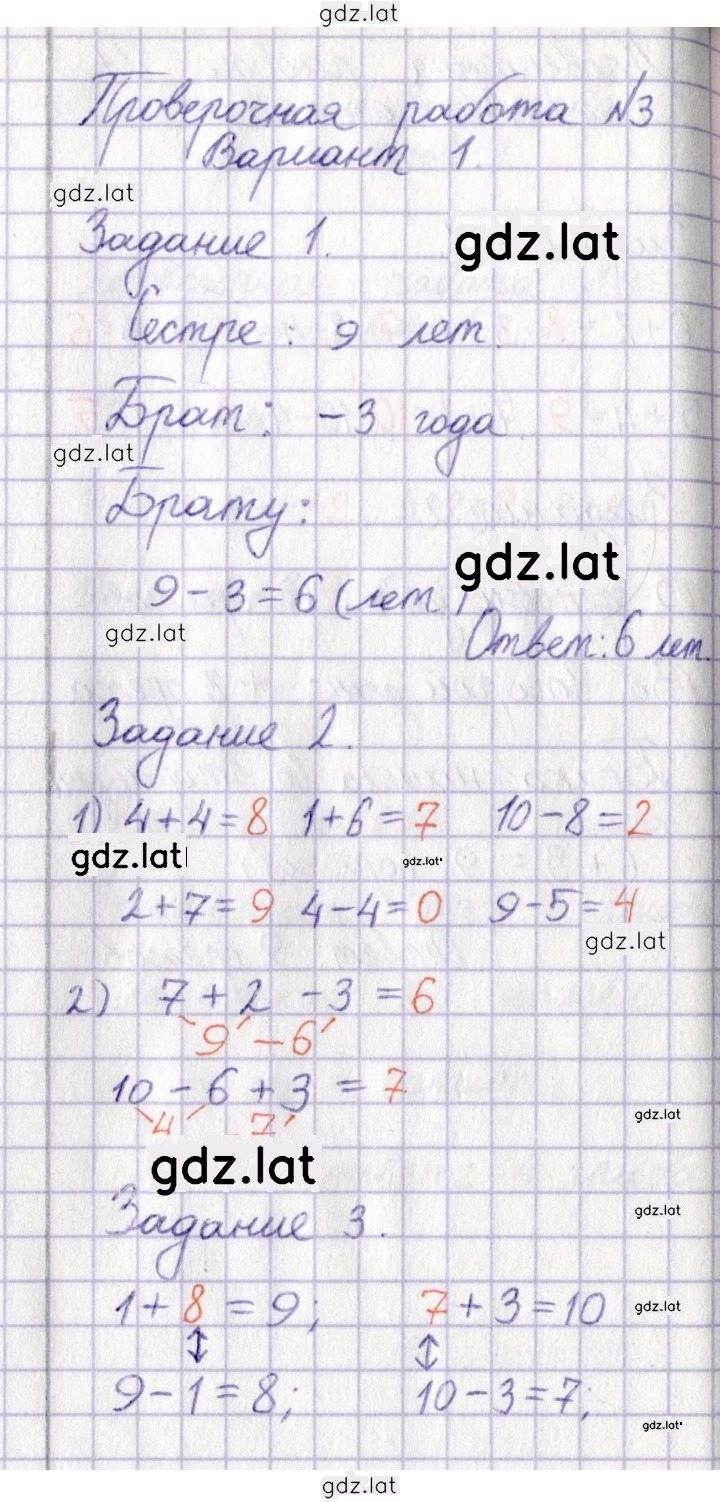 gdz.lat
Проверочная работа №3
Вариант 1.
gdz.lat
Задание 1.
gdz.lat
Сестре: 9 лет.
Брат: -3 года
gdz.lat
Брату:
gdz.lat
9-3=6 (лет)
gdz.lat
Ответ: 6 лет.
Задание 2.
1) 4+4=8 1+6=7 10-8=2
gdz.lat gdz.lat
2+7=9 4-4=0 9-5=4
gdz.lat
2) 7+2-3=6
9 - 6
10-6+3=7
4 7
gdz.lat
gdz.lat
Задание 3.
gdz.lat
1+8=9; 7+3=10
gdz.lat
↕ ↕
9-1=8; 10-3=7;
gdz.lat
gdz.lat